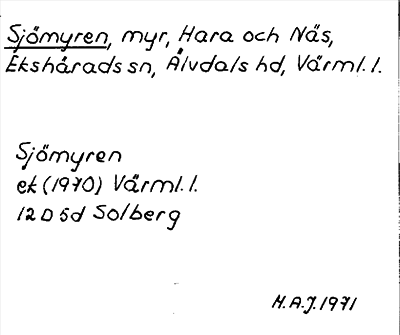 Sjömyren, myr, Hara och Näs,
Ekshärads sn, Älvdals hd, Värml. l.
Sjömyren
ek (1970) Värml. l.
12 D 5d Solberg
H.A.J. 1971